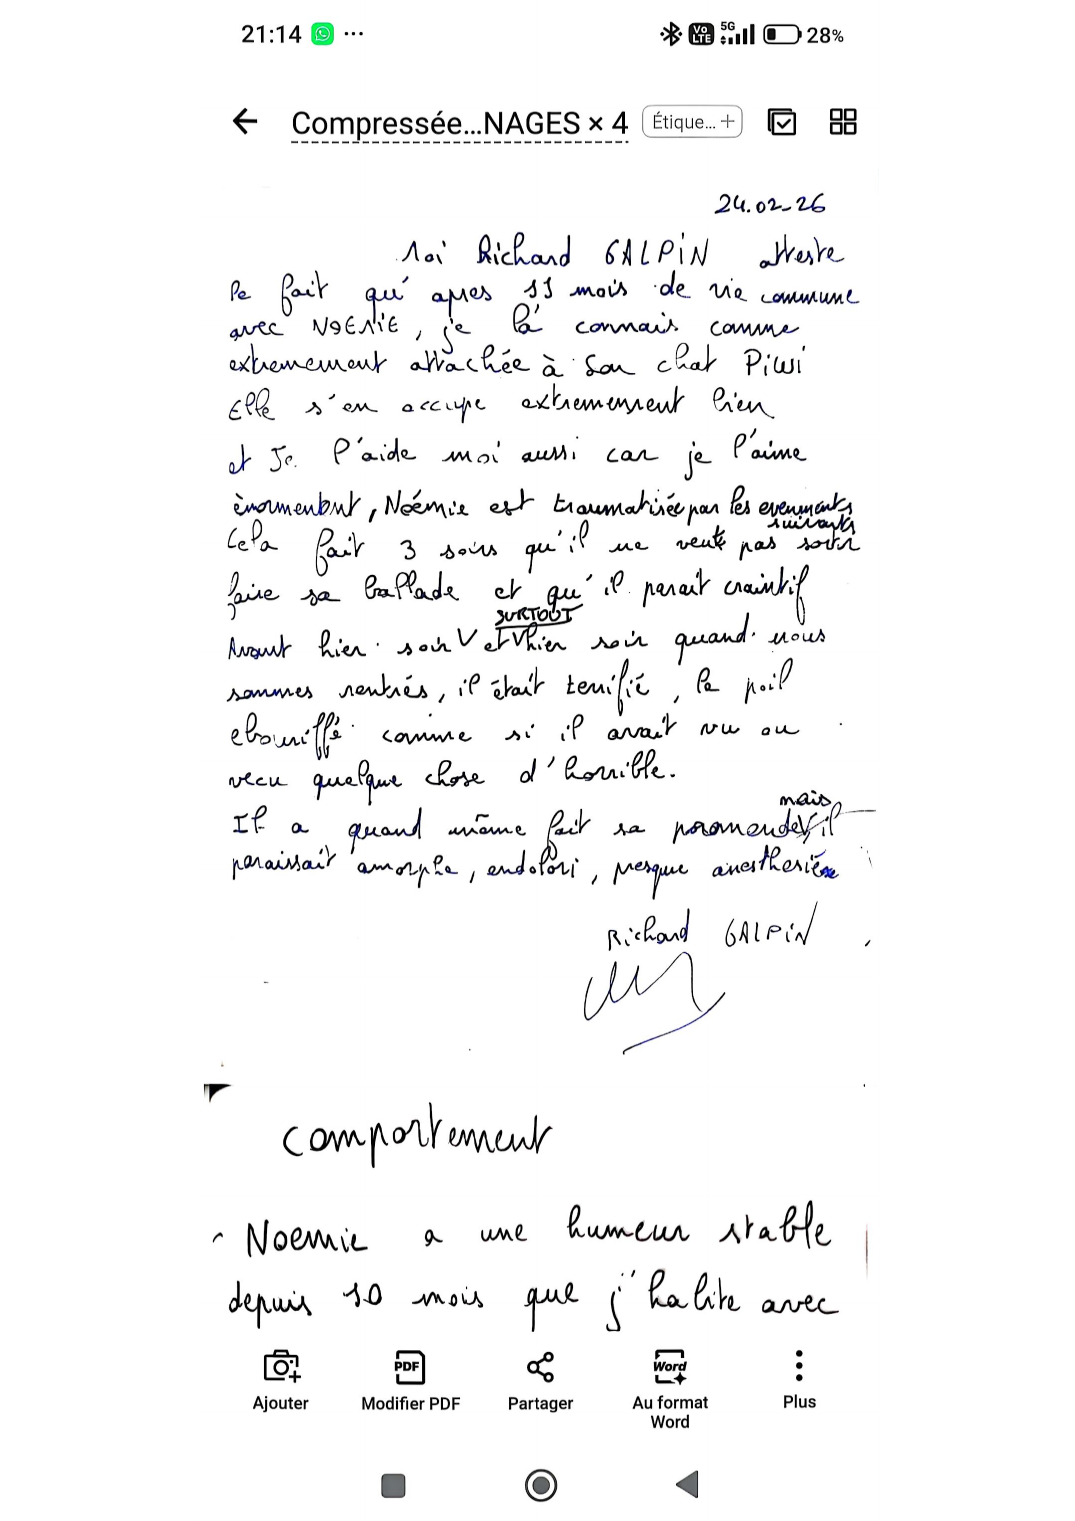 21:14 ... 5G 28%
Compressée...NAGES × 4 Étique... +
24.02-26
Moi Richard GALPIN atteste
le fait qu' apres 11 mois de vie commune
avec NOEMIE, je là connais comme
extremement attachée à son chat Piwi
Elle s'en accupe extremement bien
et Je l'aide moi aussi car je l'aime
énormement, Noémie est traumatisée par les evenments
suivants
Cela fait 3 soirs qu'il ne veut pas sortir
faire sa ballade et qu'il parait craintif
SURTOUT
Avant hier soir V et V hier soir quand nous
sommes rentrés, il était terrifié, le poil
ebouriffé comme si il avait vu ou
vecu quelque chose d'horrible.
mais
Il a quand même fait sa promende V, il
paraissait amorphe, endolori, presque
Richard GALPIN
comportement
Noemie a une humeur stable
depuis 10 mois que j'habite avec
PDF Word
Ajouter Modifier PDF Partager Au format Plus
Word